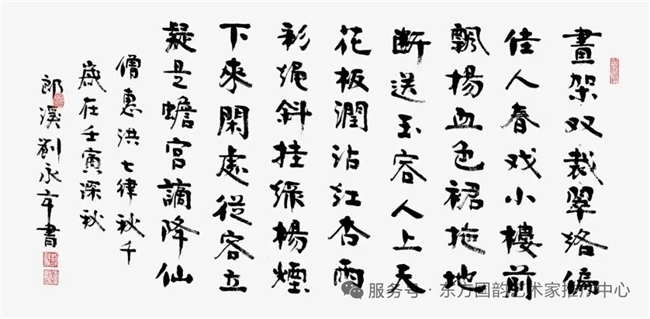 畫架双裁翠络偏
佳人春戏小樓前
飄揚血色裙拖地
断送玉容人上天
花板潤沾红杏雨
彩绳斜挂绿楊煙
下來閑處從容立
疑是蟾宮謫降仙
僧惠洪七律秋千
歲在壬寅深秋
郎溪劉永年書
服务号 · 东方国韵艺术家推荐中心